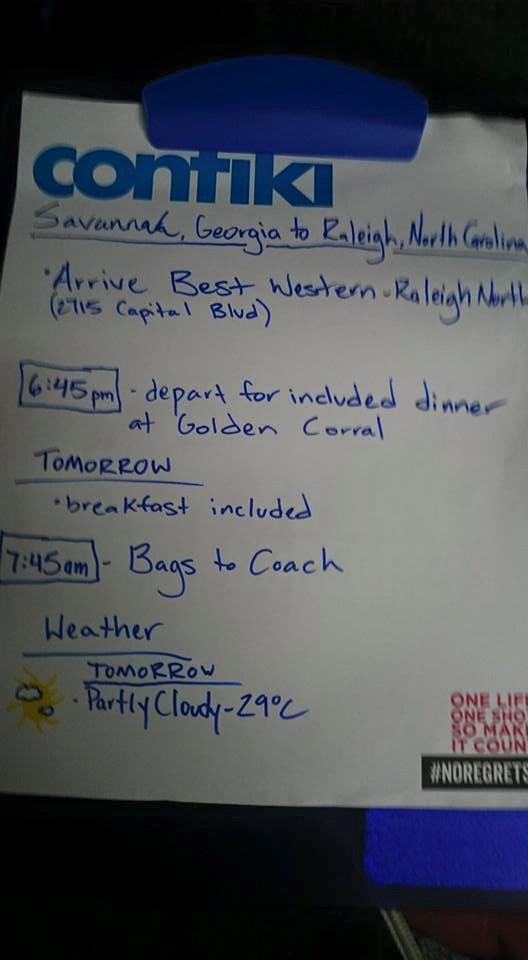 contiki
Savannah, Georgia to Raleigh, North Carolina
· Arrive Best Western - Raleigh North
(2715 Capital Blvd)
6:45pm - depart for included dinner
at Golden Corral
TOMORROW
· breakfast included
7:45am - Bags to Coach
Weather
TOMORROW
· Partly Cloudy - 29°C
ONE LIFE
ONE SHO
SO MAK
IT COUN
#NOREGRETS